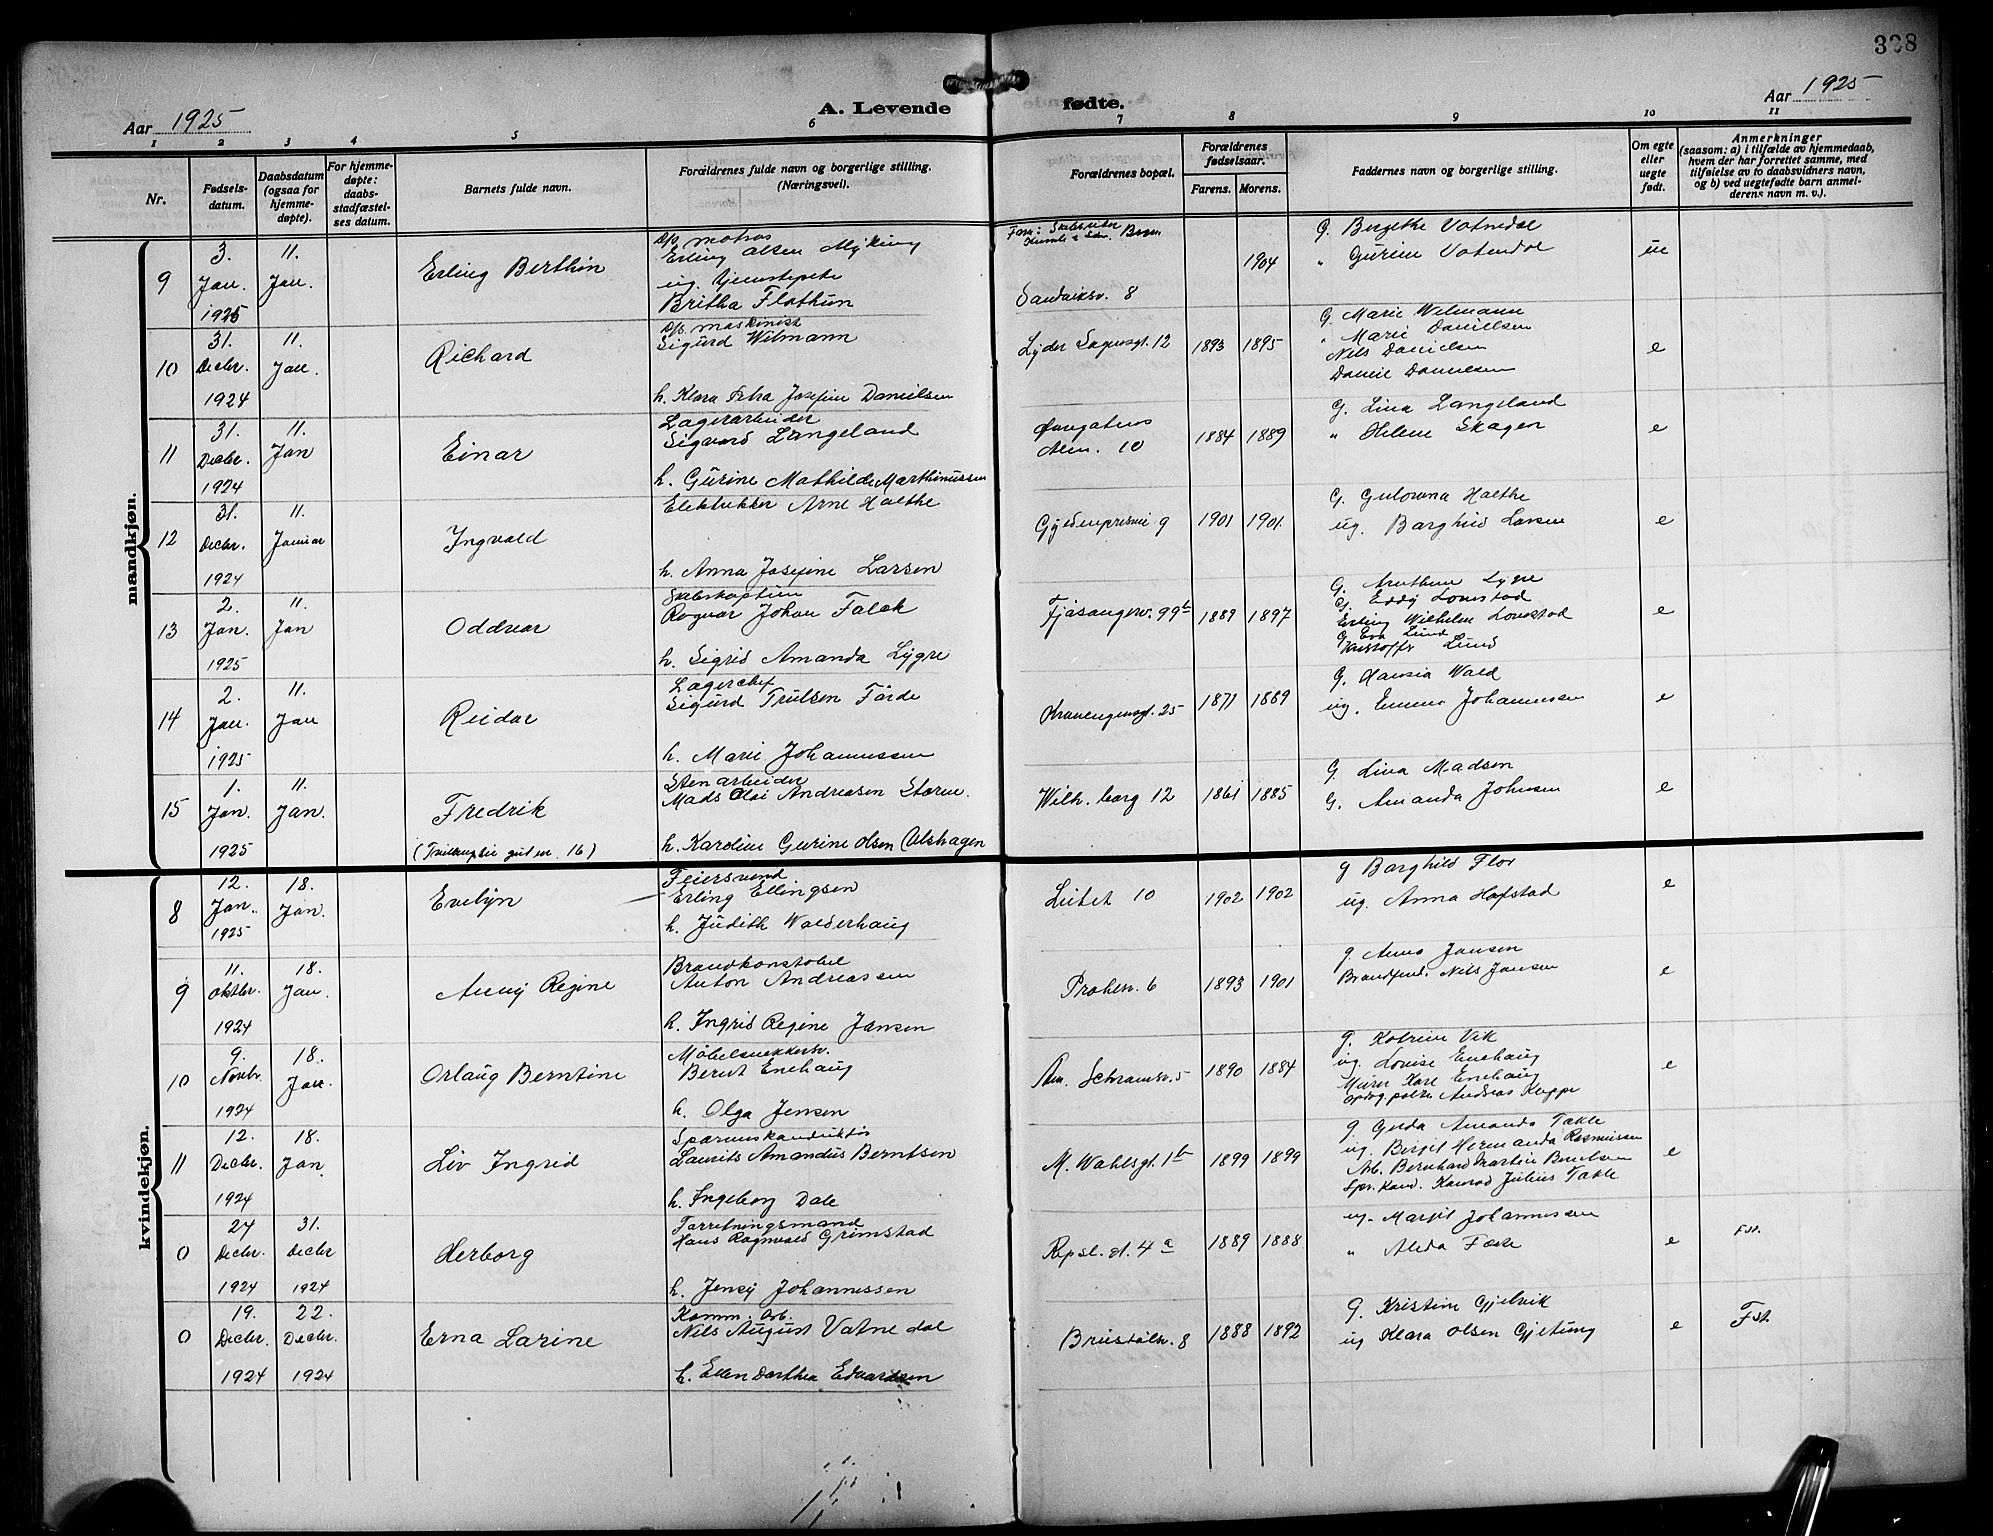 338
Aar 1925
A. Levende fødte.
Aar 1925
1 2 3 4 5 6 7 8 9 10 11
Nr.
Fødsels-
datum.
Daabsdatum
(ogsaa for
hjemme-
døpte).
For hjemme-
døpte:
daabs-
stadfæstel-
ses datum.
Barnets fulde navn.
Forældrenes fulde navn og borgerlige stilling.
(Næringsvei).
Forældrenes bopæl.
Forældrenes
fødselsaar.
Farens. Morens.
Faddernes navn og borgerlige stilling.
Om egte
eller
uegte
født.
Anmerkninger
(saasom: a) i tilfælde av hjemmedaab,
hvem der har forrettet samme, med
tilføielse av to daabsvidners navn,
og b) ved uegtefødte barn anmel-
derens navn m. v.).
mandkjøn.
9
3.
Jan.
1925
11.
Jan.
Erling Berthin
Erling Olsen Myking
ug.
Britha Flothun
Sandviksv. 8
1904
G. Birgithe Vatnedal
" Gurine Vatnedal
ue
10
31.
Decbr.
1924
11.
Jan.
Richard
d/s maskinist
Sigurd Wilmann
h. Klara Petra Josefine Danielsen
Lyder Sagensgt. 12
1893 1895
G. Marie Wilmann
" Marie Danielsen
Nils Danielsen
Daniel Danielsen
e
11
31.
Decbr.
1924
11.
Jan
Einar
Lagerarbeider
Sigvard Langeland
h. Gurine Mathilde Marthinussen
Alm. 10
1884 1889
G. Lina Langeland
" Helene Skagen
e
12
31.
Decbr.
1924
11.
Januar
Ingvald
Elektrikker Arne Halthe
h. Anna Josefine Larsen
Gyldenprisvei 9
1901 1901.
G. Gulowna Halthe
ug. Borghild Larsen
e
13
2.
Jan.
1925
11.
Jan
Oddvar
Skibskaptein
Ragnar Johan Falck
h. Sigrid Amanda Lygre
Fjøsangerv. 99b
1889 1897
G. Lygre
G. Eddy Lonstad
Erling Wilhelm Lonstad
G. Eva Lund
Kristoffer Lund
e
14
2.
Jan.
1925
11.
Jan
Reidar
Lagerchef
Sigurd Trulsen Førde
h. Marie Johannessen
Kronengensgt. 25
1871 1889
G. Wald
ug. Emma Johannessen
e
15
1.
Jan.
1925
11.
Jan.
Fredrik
(Tvillingpike gud nr. 16)
Stenarbeider
Mads Olai Andreasen Størm.
h. Karoline Gurine Olsen Ulshagen
Wilh. borg 12
1861 1885
G. Lina Madsen
G. Amanda Johnsen
e
kvindekjøn.
8
12.
Jan.
1925
18.
Jan.
Evelyn
Feiersvend
Erling Ellingsen
h. Judith Walderhaug
Leitet 10
1902 1902
g Borghild Flor
ug. Anna Hofstad
e
9
11.
Oktbr.
1924
18.
Jan.
Anny Regine
Brandkonstabel
Anton Andreassen
h. Ingrid Regine Jansen
Prahlsv. 6
1893 1901
g. Anna Jansen
Brandfund. Nils Jansen
e
10
9.
Novbr.
1924
18.
Jan.
Orlaug Berntine
Møbelsnekkersv.
Bernt Enehaug
h. Olga Jensen
Abr. Schramsv. 5
1890 1884
g. Katrine Vik
ug. Louise Enehaug
Murer Kare Enehaug
Andreas Kuppe
e
11
12.
Decbr.
1924
18.
Jan.
Liv Ingrid
Sporvunskonduktør
Laurits Amandus Berntsen
h. Ingeborg Dale
M. Wahlsgt. 1b
1899 1899
g. Gerda Amanda Takle
ug. Birgit Hermanda Rasmussen
Arb. Bernhard Martin Berntsen
Spv. kond. Konrad Julius Takle
e
0
27
Decbr.
1924
31.
Decbr
1924
Herborg
Forretningsmand
Hans Ragnvald Grimstad
h. Jensy Johannessen
Repsl. gt. 4a
1889 1888
ug. Margit Johannessen
" Alida Fæste
e
Fst.
0
19.
Decbr.
1924
22.
Decbr.
1924
Erna Larine
Komm. Arb.
Nils August Vatnedal
h. Ellen Dorthea Edvardsen
Bruslålsv. 8
1888 1892
g. Kristine Gjelvik
ug Klara Olsen Gjetung
e
Fst.